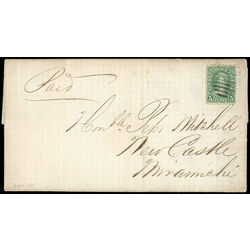 Paid
Honble Peter Mitchell
New Castle
Miramichi